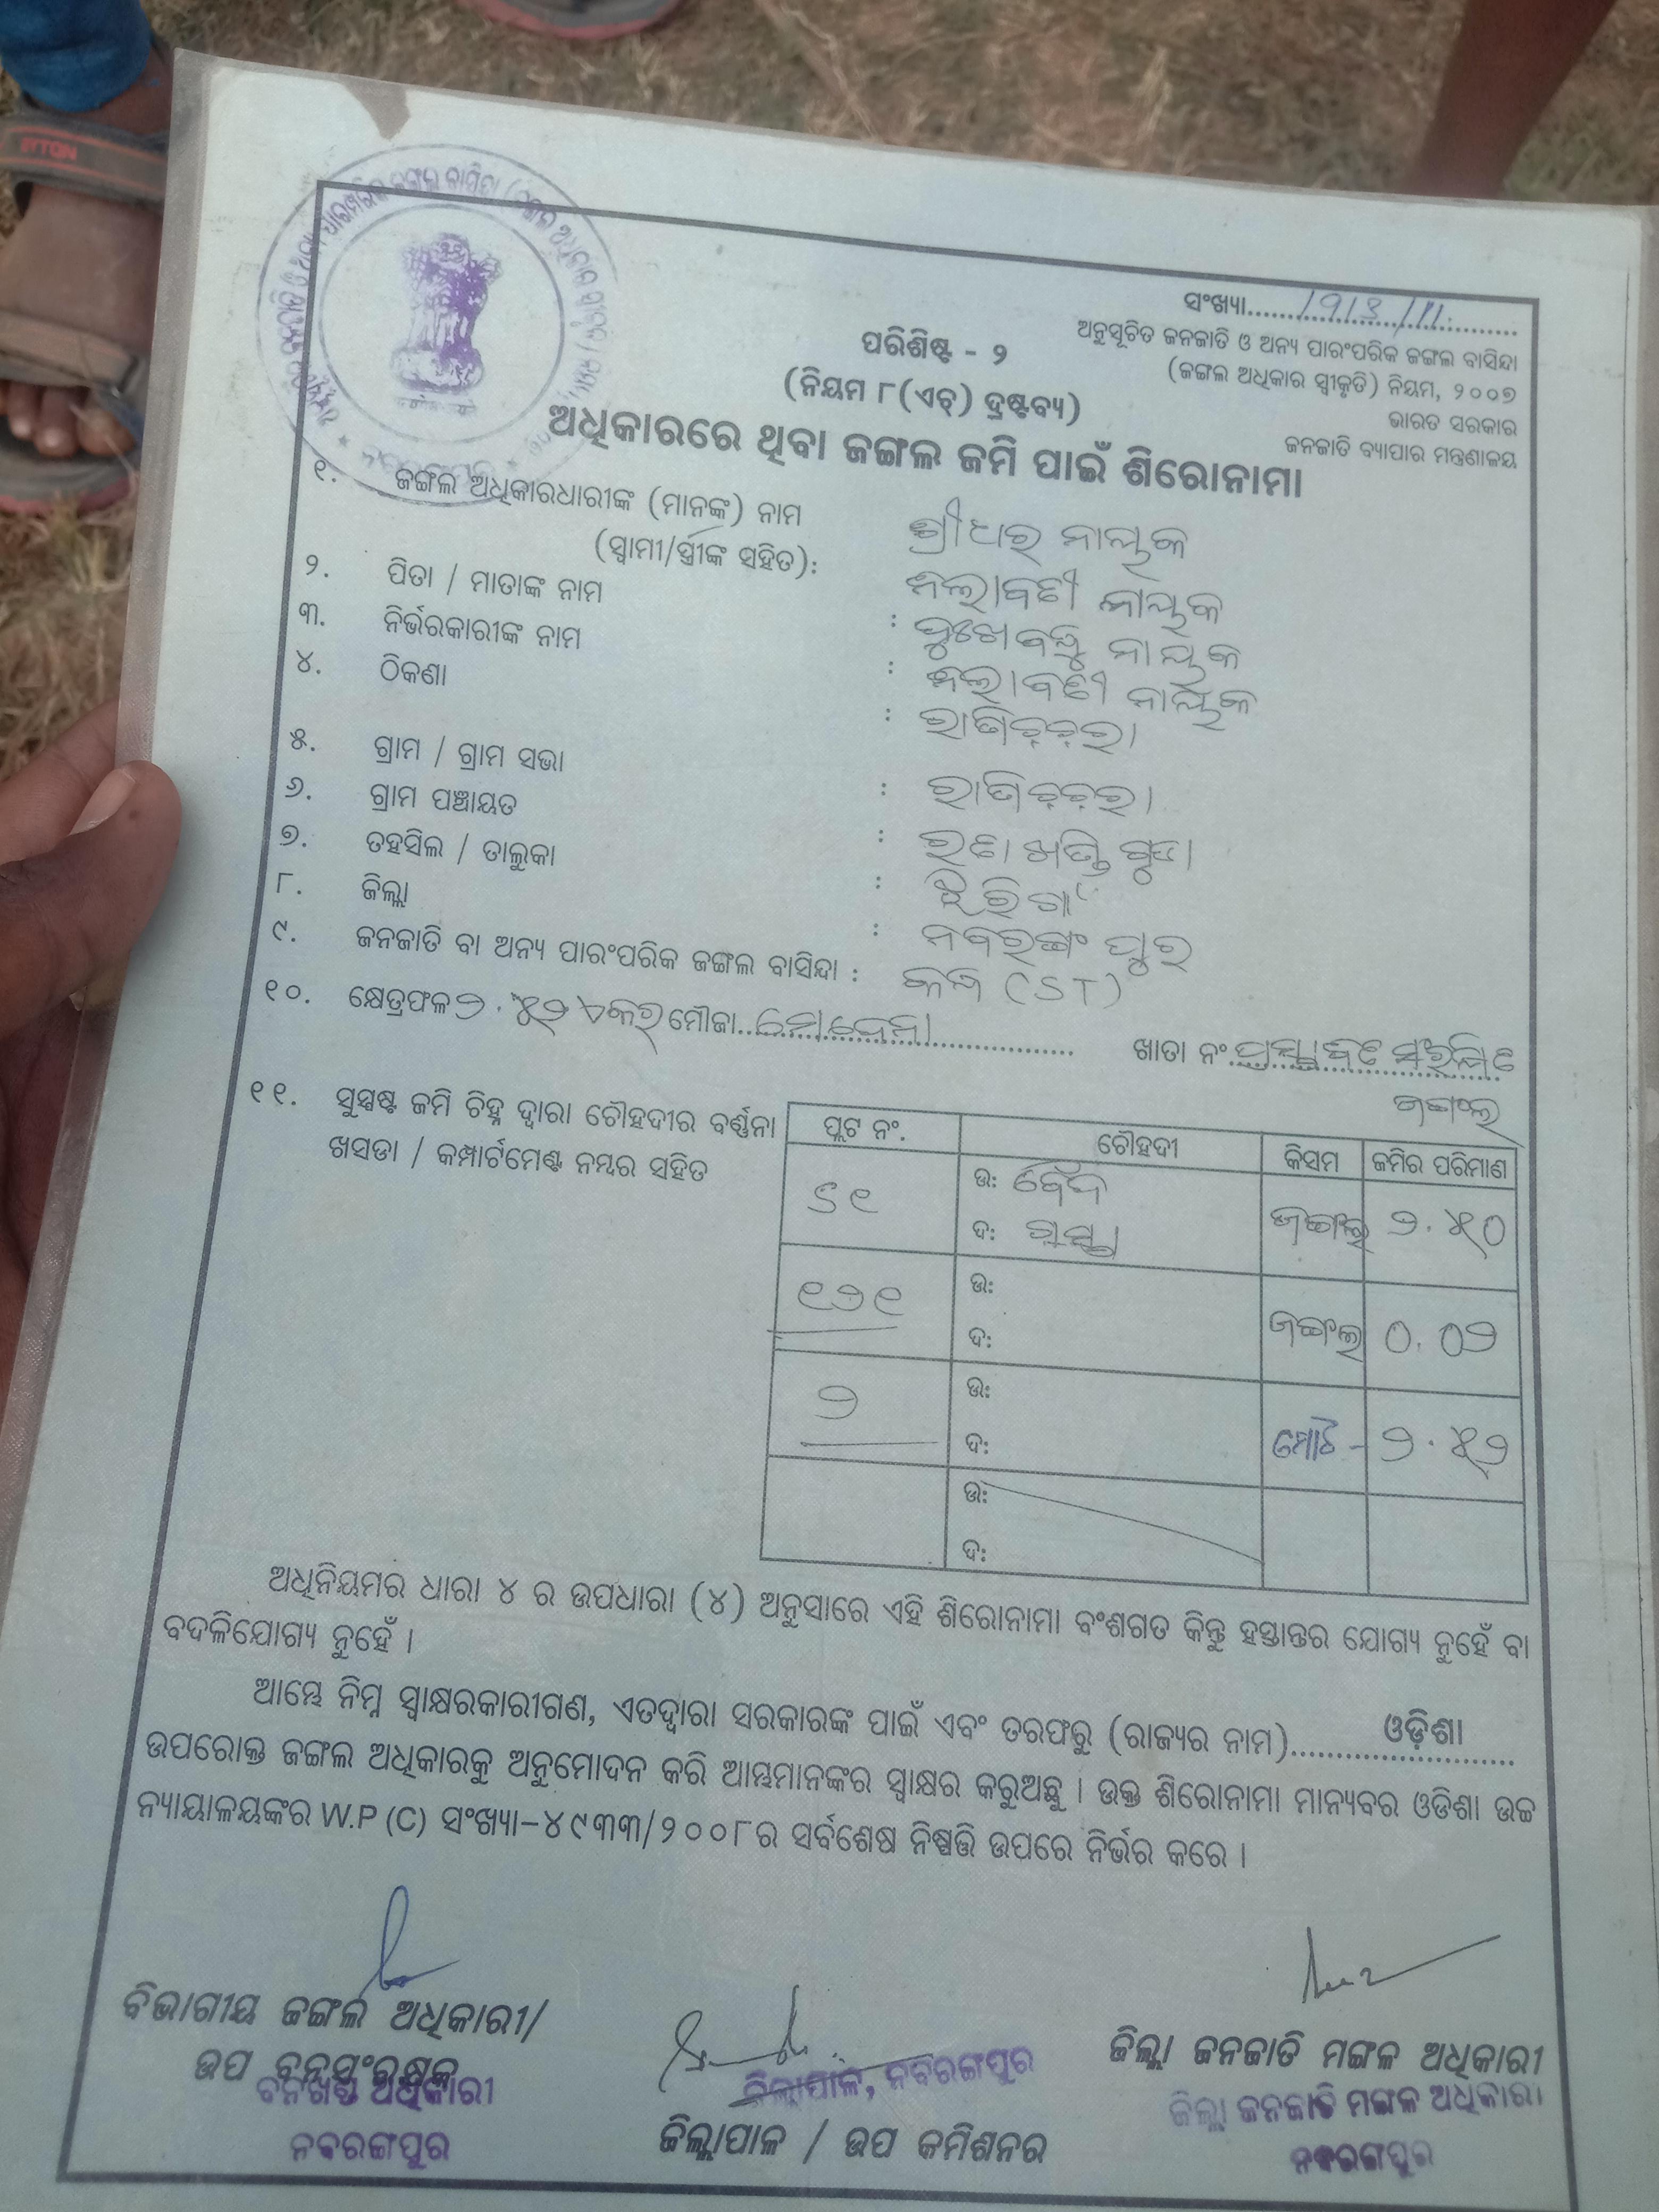 ସଂଖ୍ୟା....../୨/୫ /11.
ଅନୁସୂଚିତ ଜନଜାତି ଓ ଅନ୍ୟ ପାରଂପରିକ ଜଙ୍ଗଲ ବାସିନ୍ଦା
(ଜଙ୍ଗଲ ଅଧିକାର ସ୍ୱୀକୃତି) ନିୟମ, ୨୦୦୭
ଭାରତ ସରକାର
ଜନଜାତି ବ୍ୟାପାର ମନ୍ତ୍ରଣାଳୟ
ପରିଶିଷ୍ଟ - ୨
(ନିୟମ ୮(ଏଚ୍) ଦ୍ରଷ୍ଟବ୍ୟ)
ଅଧିକାରରେ ଥିବା ଜଙ୍ଗଲ ଜମି ପାଇଁ ଶିରୋନାମା
୧. ଜଙ୍ଗଲ ଅଧିକାରଧାରୀଙ୍କ (ମାନଙ୍କ) ନାମ ଶ୍ରୀଧର ନାୟକ
(ସ୍ୱାମୀ/ସ୍ତ୍ରୀଙ୍କ ସହିତ): ନୀଳାବତୀ ନାୟକ
୨. ପିତା / ମାତାଙ୍କ ନାମ : ଦୁଃଖବନ୍ଧୁ ନାୟକ
୩. ନିର୍ଭରକାରୀଙ୍କ ନାମ : ନୀଳାବତୀ ନାୟକ
୪. ଠିକଣା :
୫. ଗ୍ରାମ / ଗ୍ରାମ ସଭା :
୬. ଗ୍ରାମ ପଞ୍ଚାୟତ :
୭. ତହସିଲ / ତାଲୁକା : ଝରିଗାଁ
୮. ଜିଲ୍ଲା : ନବରଙ୍ଗପୁର
୯. ଜନଜାତି ବା ଅନ୍ୟ ପାରଂପରିକ ଜଙ୍ଗଲ ବାସିନ୍ଦା : କନ୍ଧ (ST)
୧୦. କ୍ଷେତ୍ରଫଳ ୨.୫୨ ଏକର ମୌଜା.......... ଖାତା ନଂ. ପ୍ରସ୍ତାବିତ ସଂରକ୍ଷିତ
ଜଙ୍ଗଲ
୧୧. ସୁସ୍ପଷ୍ଟ ଜମି ଚିହ୍ନ ଦ୍ୱାରା ଚୌହଦୀର ବର୍ଣ୍ଣନା
ଖସଡା / କମ୍ପାର୍ଟମେଣ୍ଟ ନମ୍ବର ସହିତ
ପ୍ଲଟ ନଂ. ଚୌହଦୀ କିସମ ଜମିର ପରିମାଣ
ଉ: ଜଙ୍ଗଲ ୨.୫୦
ଦ: ରାସ୍ତା
୧୨୧ ଉ: ଜଙ୍ଗଲ ୦.୦୨
ଦ:
୨ ଉ: ମୋଟ - ୨.୫୨
ଦ:
ଉ:
ଦ:
ଅଧିନିୟମର ଧାରା ୪ ର ଉପଧାରା (୪) ଅନୁସାରେ ଏହି ଶିରୋନାମା ବଂଶଗତ କିନ୍ତୁ ହସ୍ତାନ୍ତର ଯୋଗ୍ୟ ନୁହେଁ ବା
ବଦଳିଯୋଗ୍ୟ ନୁହେଁ ।
ଆମ୍ଭେ ନିମ୍ନ ସ୍ୱାକ୍ଷରକାରୀଗଣ, ଏତଦ୍ୱାରା ସରକାରଙ୍କ ପାଇଁ ଏବଂ ତରଫରୁ (ରାଜ୍ୟର ନାମ).....ଓଡ଼ିଶା.....
ଉପରୋକ୍ତ ଜଙ୍ଗଲ ଅଧିକାରକୁ ଅନୁମୋଦନ କରି ଆମ୍ଭମାନଙ୍କର ସ୍ୱାକ୍ଷର କରୁଅଛୁ । ଉକ୍ତ ଶିରୋନାମା ମାନ୍ୟବର ଓଡିଶା ଉଚ୍ଚ
ନ୍ୟାୟାଳୟଙ୍କର W.P (C) ସଂଖ୍ୟା-୪୯୩୩/୨୦୦୮ର ସର୍ବଶେଷ ନିଷ୍ପତ୍ତି ଉପରେ ନିର୍ଭର କରେ ।
ବିଭାଗୀୟ ଜଙ୍ଗଲ ଅଧିକାରୀ/
ଉପ ବନସଂରକ୍ଷକ
ବନଖଣ୍ଡ ଅଧିକାରୀ
ନବରଙ୍ଗପୁର
ଜିଲ୍ଲାପାଳ, ନବରଙ୍ଗପୁର
ଜିଲ୍ଲାପାଳ / ଉପ କମିଶନର
ଜିଲ୍ଲା ଜନଜାତି ମଙ୍ଗଳ ଅଧିକାରୀ
ଜିଲ୍ଲା ଜନଜାତି ମଙ୍ଗଳ ଅଧିକାରୀ
ନବରଙ୍ଗପୁର